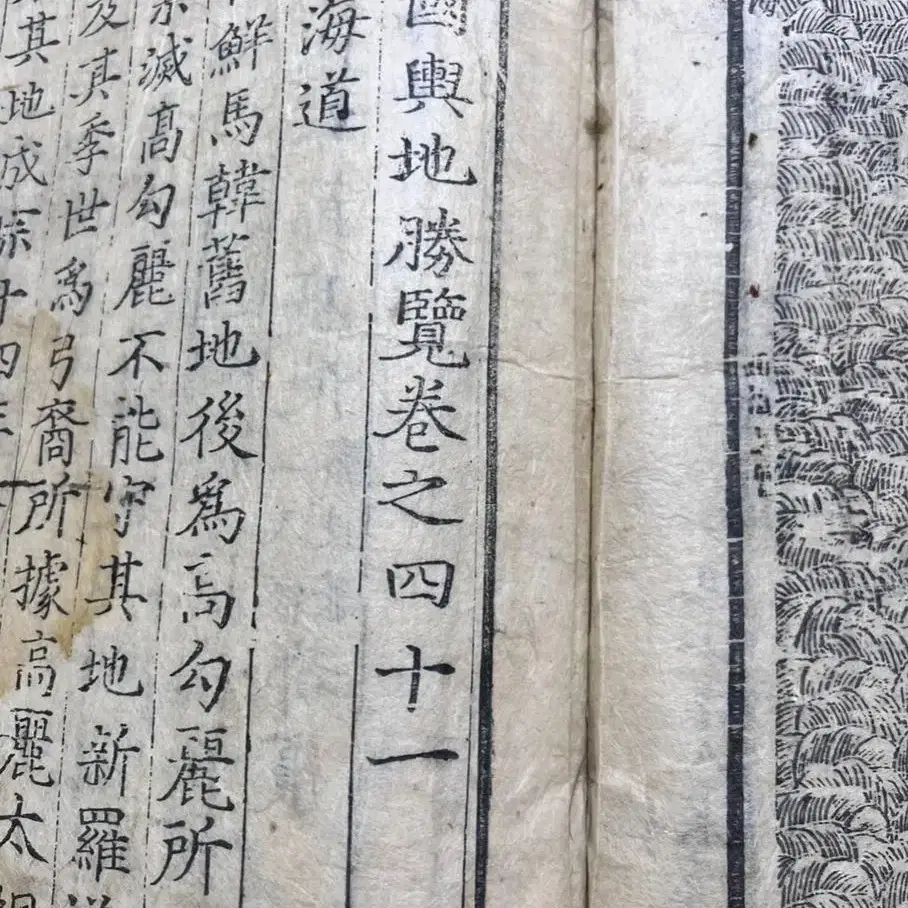 國輿地勝覽卷之四十一
海道
鮮馬韓舊地後爲高勾麗所
滅高勾麗不能守其地新羅
及其季世爲弓裔所據高麗太
其地成宗十四年